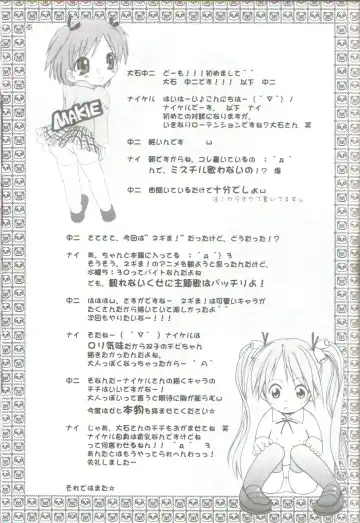 MAKIE
大石中二 どーも！！！初めまして＾＾
大石 中二です！！以下 中二
ナイケル はいはーい♪こんにちはー（´∇｀）ノ
ナイケルでーす。以下 ナイ
初めての対談になりますが、
いきなりローテンションですね？大石さん 笑
中二 眠いんです ω
ナイ 朝ですからね、コレ書いているの ：´д｀）
んで、ミスチル歌わないの！？ 爆
中二 曲聞いているだけで十分でしょω
中二 さてさて、今回は“ネギま！”だったけど、どうだった！？
ナイ あ、ちゃんと本題に入ってる ：´д｀）３
そうそう。ネギま！のアニメを観ようと思ったんだけど、
水曜ろ：３０ってバイトなんだよね
でも、観れないくせに主題歌はバッチリよ！
中二 はははω、さすがですなー ネギま！は可愛いキャラが
たくさんだから描いていて楽しかったよ＾＾
次回もやりたいな～！！！
ナイ そだねー（´∇｀）ナイケルは
ロリ気味だから双子のチビちゃん
描きたかったんだけれどね。
大人っぽくなっちゃったから残念。
中二 そもなんだーナイケルさんの描くキャラの
チチはいいですがねー！
大人っぽいって言うと期待に胸が膨らむω
今度はぜひ本物も拝ませてください☆
ナイ じゃ、大石さんのチチもおがませてね 笑
ナイケル自身は貧乳なんですけどね
って何言わせるねん！！´д｀）３
あたしたちはもうやってられへんわっ！
失礼しました～
それではまた☆